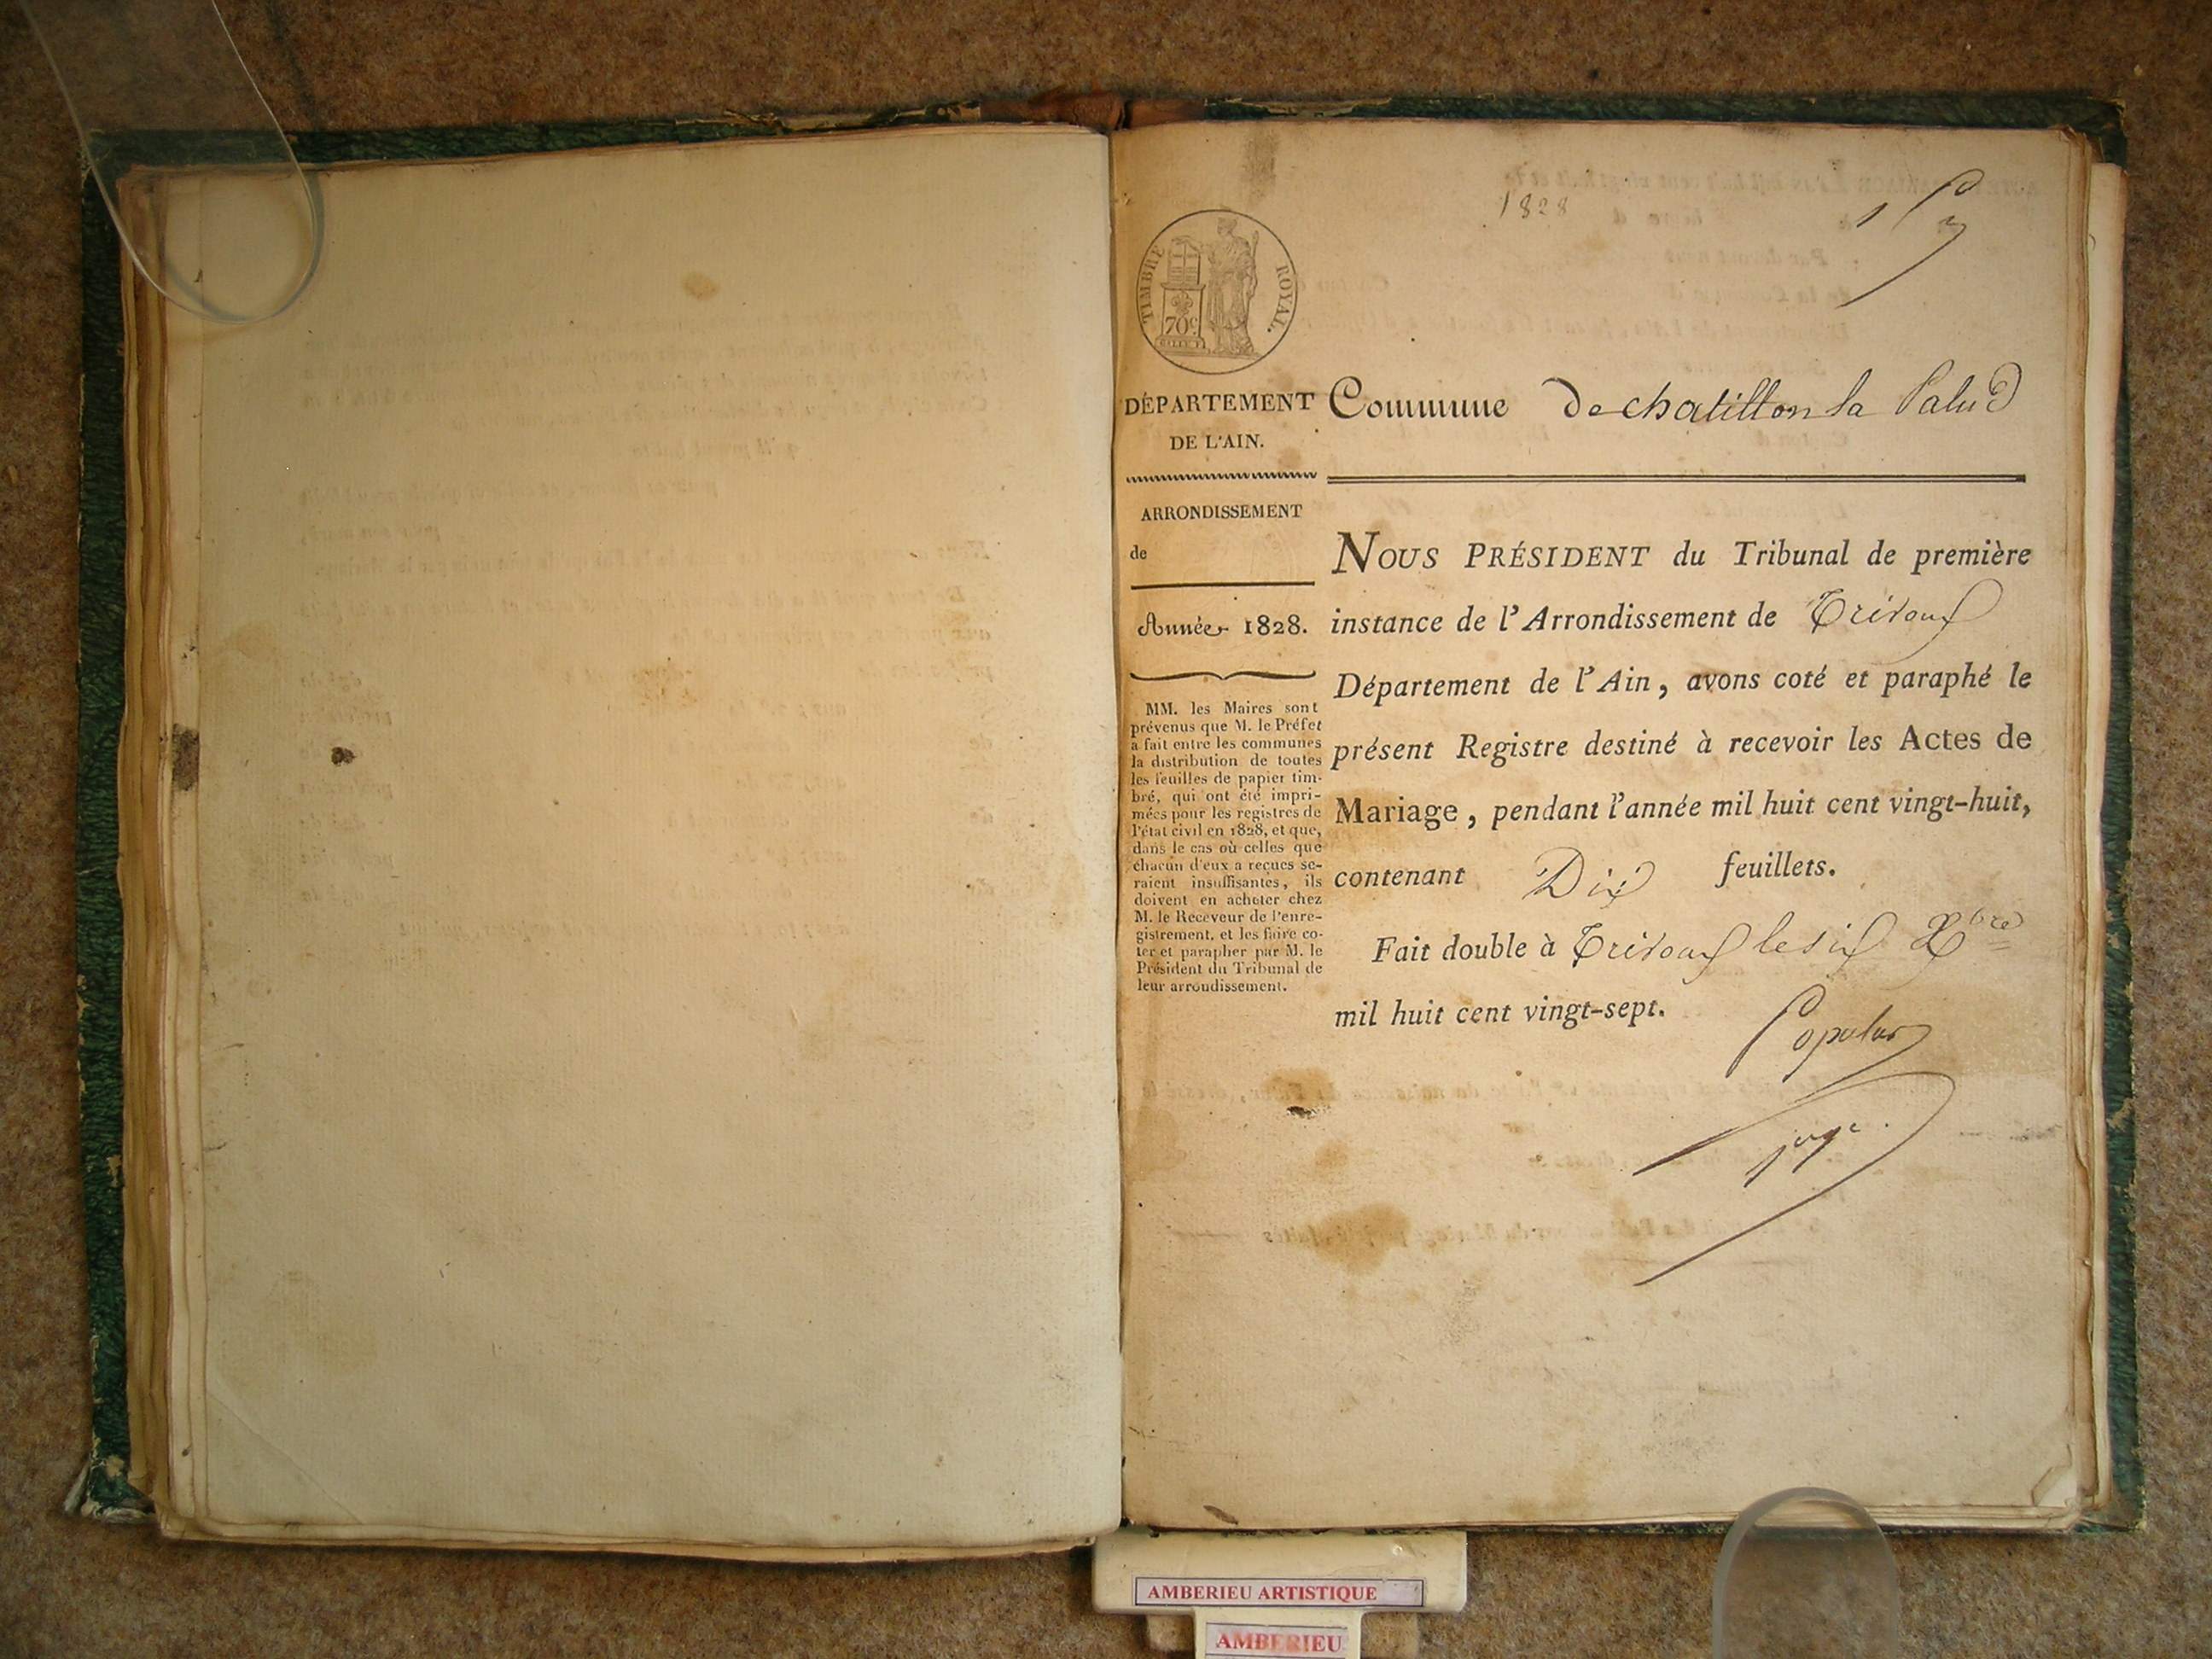 1828
1
TIMBRE ROYAL.
70c
DÉPARTEMENT
DE L'AIN.
ARRONDISSEMENT
de
Année 1828.
MM. les Maires sont
prévenus que M. le Préfet
a fait entre les communes
la distribution de toutes
les feuilles de papier tim-
bré, qui ont été impri-
mées pour les registres de
l'état civil en 1828, et que,
dans le cas où celles que
chacun d'eux a reçues se-
raient insuffisantes, ils
doivent en acheter chez
M. le Receveur de l'enre-
gistrement, et les faire co-
ter et parapher par M. le
Président du Tribunal de
leur arrondissement.
Commune De chatillon la Palud
NOUS PRÉSIDENT du Tribunal de première
instance de l'Arrondissement de Trévoux
Département de l'Ain, avons coté et paraphé le
présent Registre destiné à recevoir les Actes de
Mariage, pendant l'année mil huit cent vingt-huit,
contenant Dix feuillets.
Fait double à Trévoux le six Xbre
mil huit cent vingt-sept.
juge.
AMBERIEU ARTISTIQUE
AMBERIEU